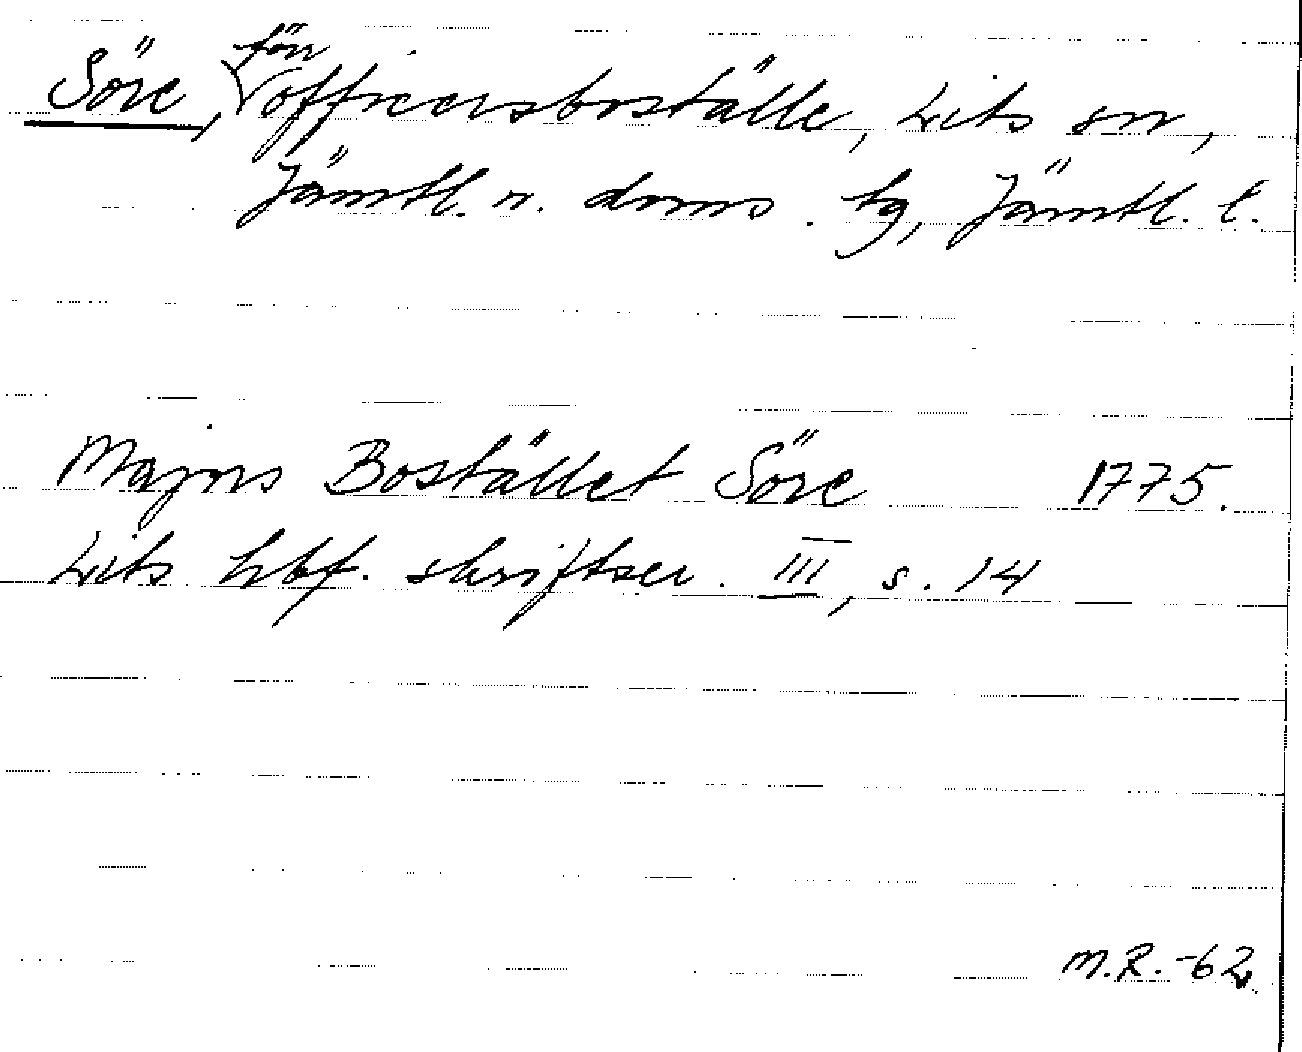 Söre, förr officersboställe, Lits sn,
Jämtl. n. doms. tg, Jämtl. l.
Majors Bostället Söre 1775.
Lits hbf. skriftser. III, s. 14
M.R. -62